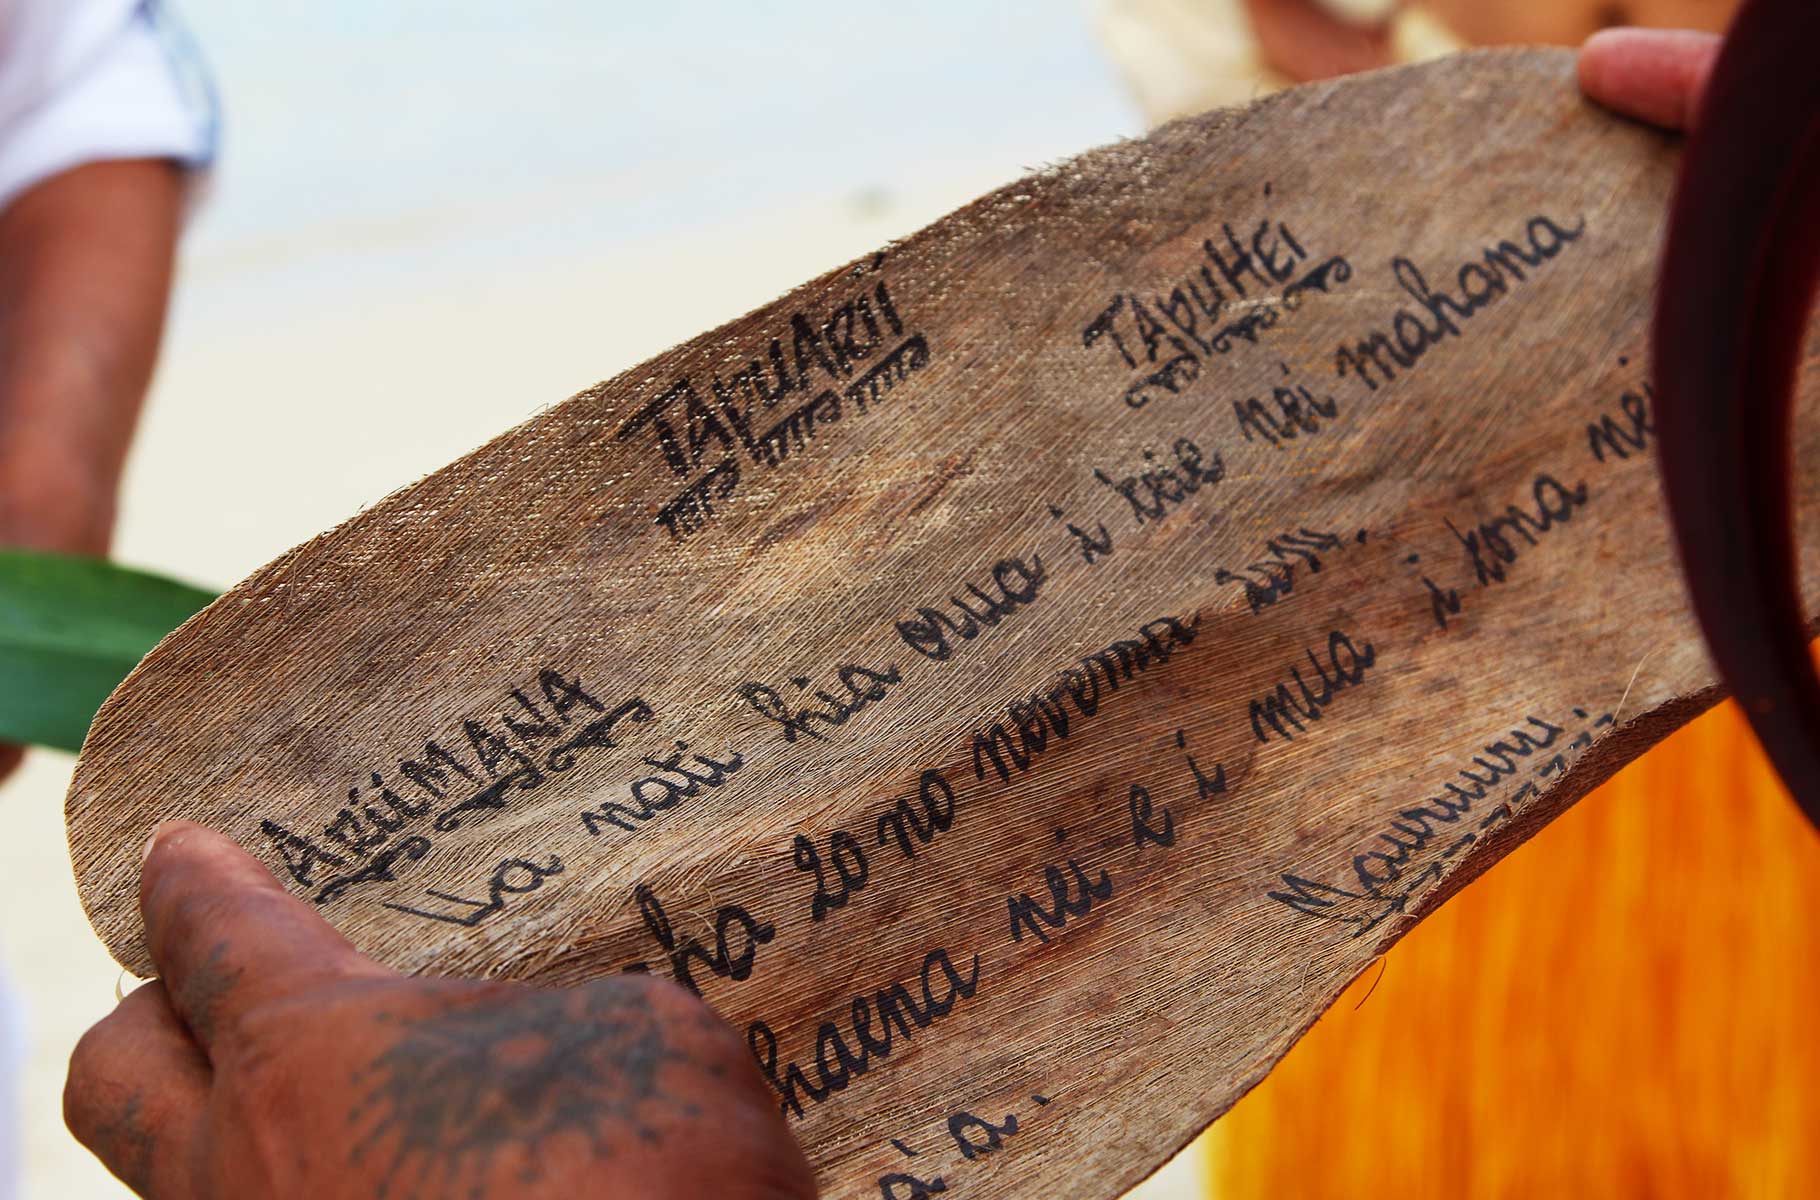 TAPUARII TAPUHEI
ARIIMANA
Ua nati hia orua i teie nei mahana
20 no novema
haena nei e i mua i tona nei
Mauruuru.